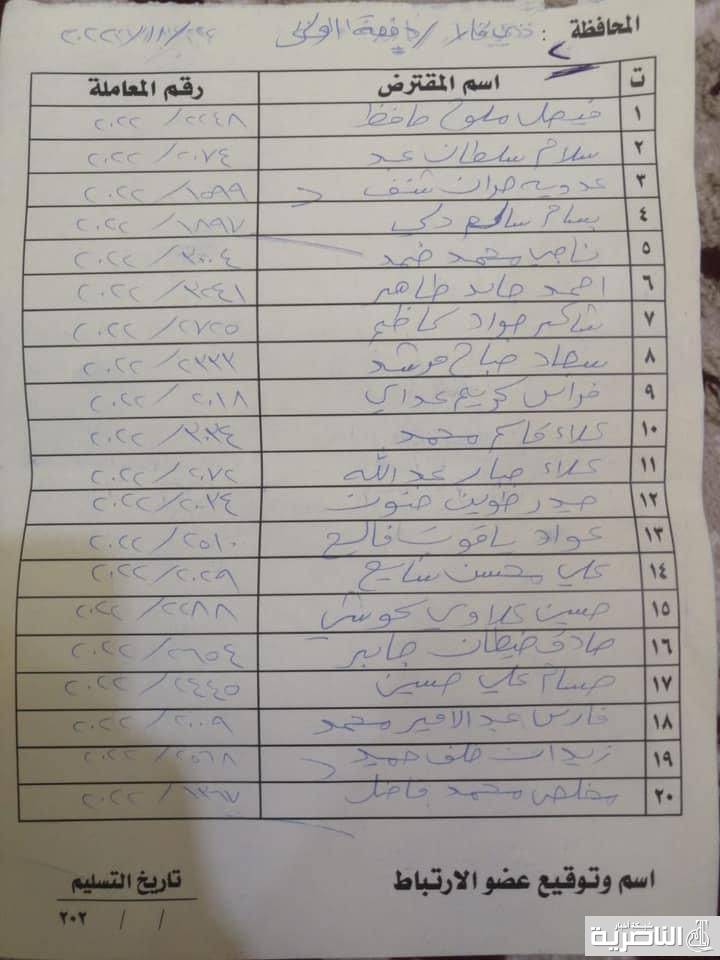 المحافظة : ذي قار / دفعة الاولى ٢٠٢٢/١٢/
ت اسم المقترض رقم المعاملة
١ فيصل ملوح حافظ ٢٢٤٨ / ٢٠٢٢
٢ سلام سلطان عبد ٢٠٧٤ / ٢٠٢٢
٣ عدوية شنف ١٥٩٩ / ٢٠٢٢
٤ بسام سالم ١٨٩٧ / ٢٠٢٢
٥ ناجي محمد حمد ٣٠٠٤ / ٢٠٢٢
٦ احمد حامد طاهر ٢٢٤١ / ٢٠٢٢
٧ شاكر جواد كاظم ٢٧٢٥ / ٢٠٢٢
٨ سجاد صباح مرشد ٢٣٣٢ / ٢٠٢٢
٩ فراس كريم عداي ٢٠١٨ / ٢٠٢٢
١٠ علاء قاسم محمد ٣٠٣٤ / ٢٠٢٢
١١ علاء جبار عبدالله ٢٠٧٢ / ٢٠٢٢
١٢ حيدر ٢٠٣٤ / ٢٠٢٢
١٣ عواد ياقوت فالح ٢٥١٠ / ٢٠٢٢
١٤ علي محسن شايع ٢٠٢٩ / ٢٠٢٢
١٥ حسين علاوي ٢٢٨٨ / ٢٠٢٢
١٦ صادق جابر ٢٦٥٤ / ٢٠٢٢
١٧ حسام علي حسين ٢٤٤٥ / ٢٠٢٢
١٨ فارس عبد الامير محمد ٢٠٠٩ / ٢٠٢٢
١٩ زيدان خلف حميد ٢٥٦٨ / ٢٠٢٢
٢٠ مخلص محمد فاضل ١٣٦٧ / ٢٠٢٢
اسم وتوقيع عضو الارتباط تاريخ التسليم
/ / ٢٠٢
شبكة اخبار
الناصرية